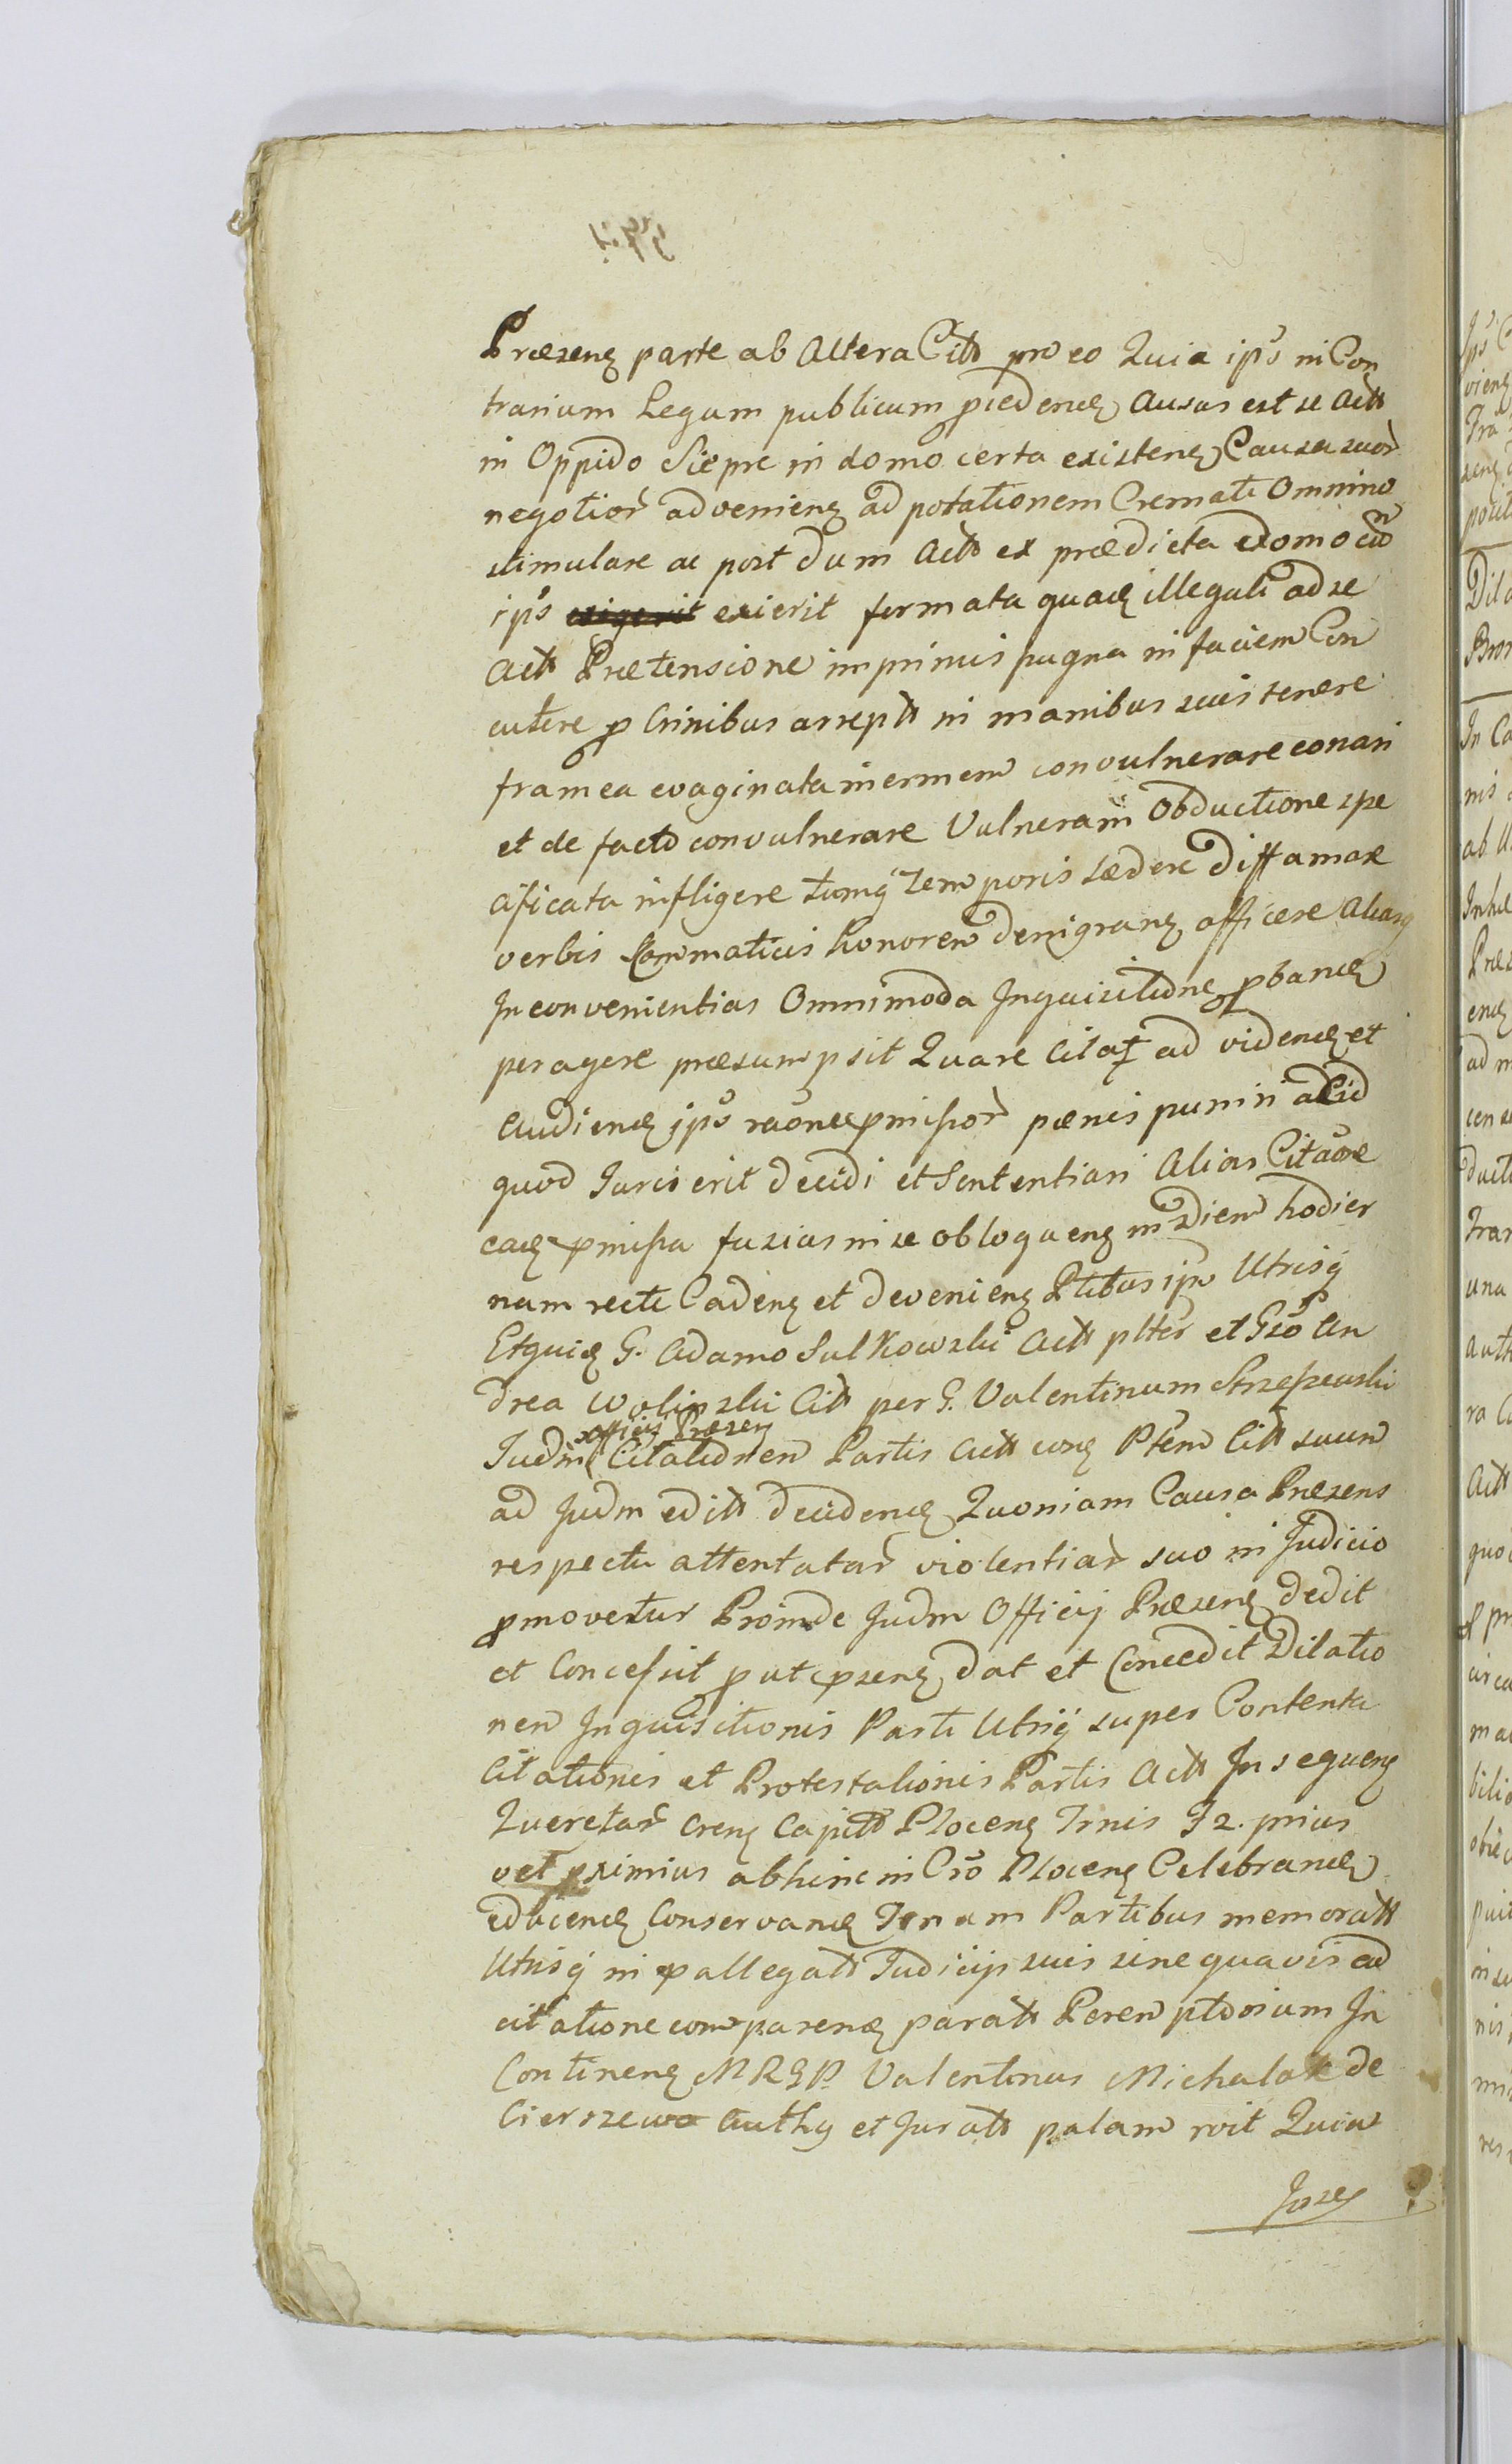 Præsenę parte ab Altera Citt pro eo Quia ipś in Con
trarium Legum publicum procedendę Ausus est se Actt
in Oppido Siepre in domo certa existenę Causa suoŕ
negotioŕ advenienę ad potationem Cremati Omnino
stimulare ac post dum Actt ex prædicta edomo
ipś exierit formata quadę illegali adse
Actt Prætensione imprimis pugna in faciem Con
cutere p Crinibus arreptt in manibus suis tenere
framea evaginata inermem convulnerare conari
et de facto convulnerare Vulneram Obductione spe
cificata infligere tumq Temporis lædere Diffamare
verbis Sammaticis honorem denigranę afficere Aliasq
Inconvenientias Omnimoda Inquisitione pbandę
peragere præsumpsit Quare Citatt ad videndę et
audiendę ipś raone pmissoŕ pænis puniri
quod Juris erit Decidi et Sententiari Alias Citaõne
eadę pmissa fusius in se obloquenę in Diem hodier
nam recte Cadenę et Devenienę Ptibus ipis Utrisq
Etquidę G. Adamo Sulkowski Actt pltr et Gso An
drea Wolinski Citt per G. Valentinum Strzeszewski
officii Præsenę
Judm Citationem Partis Actt conę Ptem Citt suum
ad Judm editt decidendę Quoniam Causa Præsens
respectu attentataŕ violentiaŕ suo in Judicio
pmovetur Proinde Judm Officij Præsenę dedit
et Concessit p ut pzenę dat et Concedit Dilatio
nem Inquisitionis Parti Utriq super Contenta
Citationis et Protestationis Partis Actt In sequenę
Queretaŕ Crenę Capitt Plocenę Trnis 12. prius
vel pximius abhinc in Cro Plocenę Celebrandę
educendę Conservandę Trnum Partibus memoratt
Utrisq in pallegatt Judicijs suis sine quavis ad
citatione comparendę paratt Peremptorium In
Continenę MRGP. Valentinus Michalak de
Cierszewo Authę et Juratt palam roit Quia